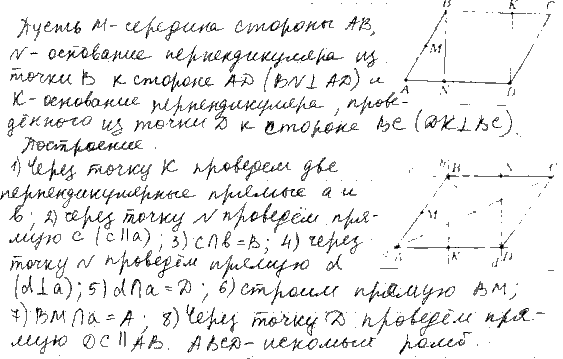 Пусть M-середина стороны AB,
N-основание перпендикуляра из
точки B к стороне AD (BN⊥AD) и
K-основание перпендикуляра, прове-
дённого из точки D к стороне BC (DK⊥BC)
Построение.
1) Через точку K проведем две
перпендикулярные прямые a и
b; 2) через точку N проведём пря-
мую c (c∥a); 3) c∩b=B; 4) через
точку N проведём прямую d
(d⊥a); 5) d∩a=D; 6) строим прямую BM;
7) BM∩a=A; 8) Через точку D проведём пря-
мую DC∥AB. ABCD-искомый ромб.
B K C
M
A N D
B N C
M
A K D
d